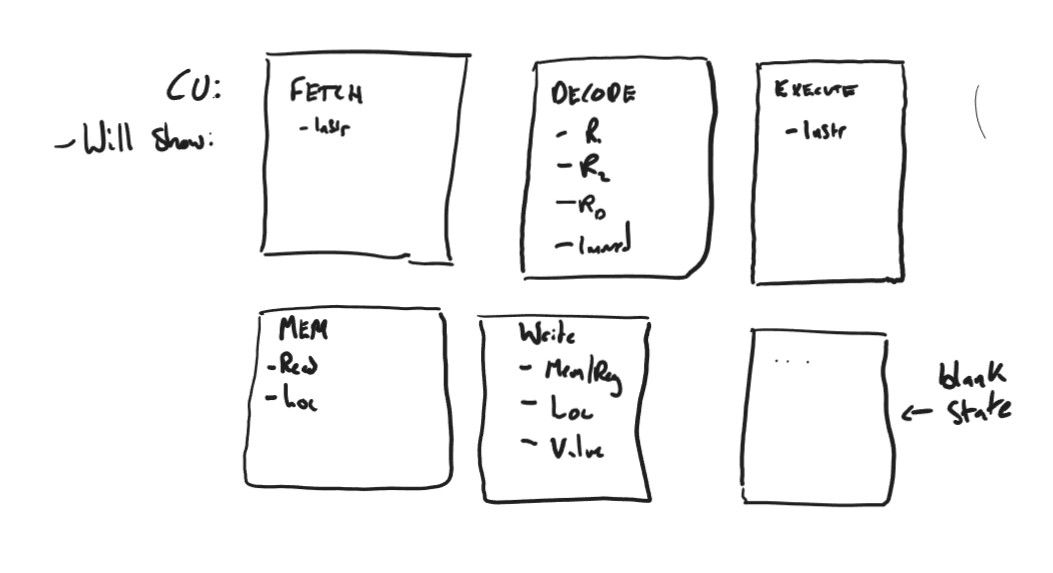 CU:
- Will show:
FETCH
- Instr
DECODE
- R1
- R2
- RD
- Immed
EXECUTE
- Instr
MEM
- Read
- Loc
Write
- Mem/Reg
- Loc
- Value
...
blank
← state